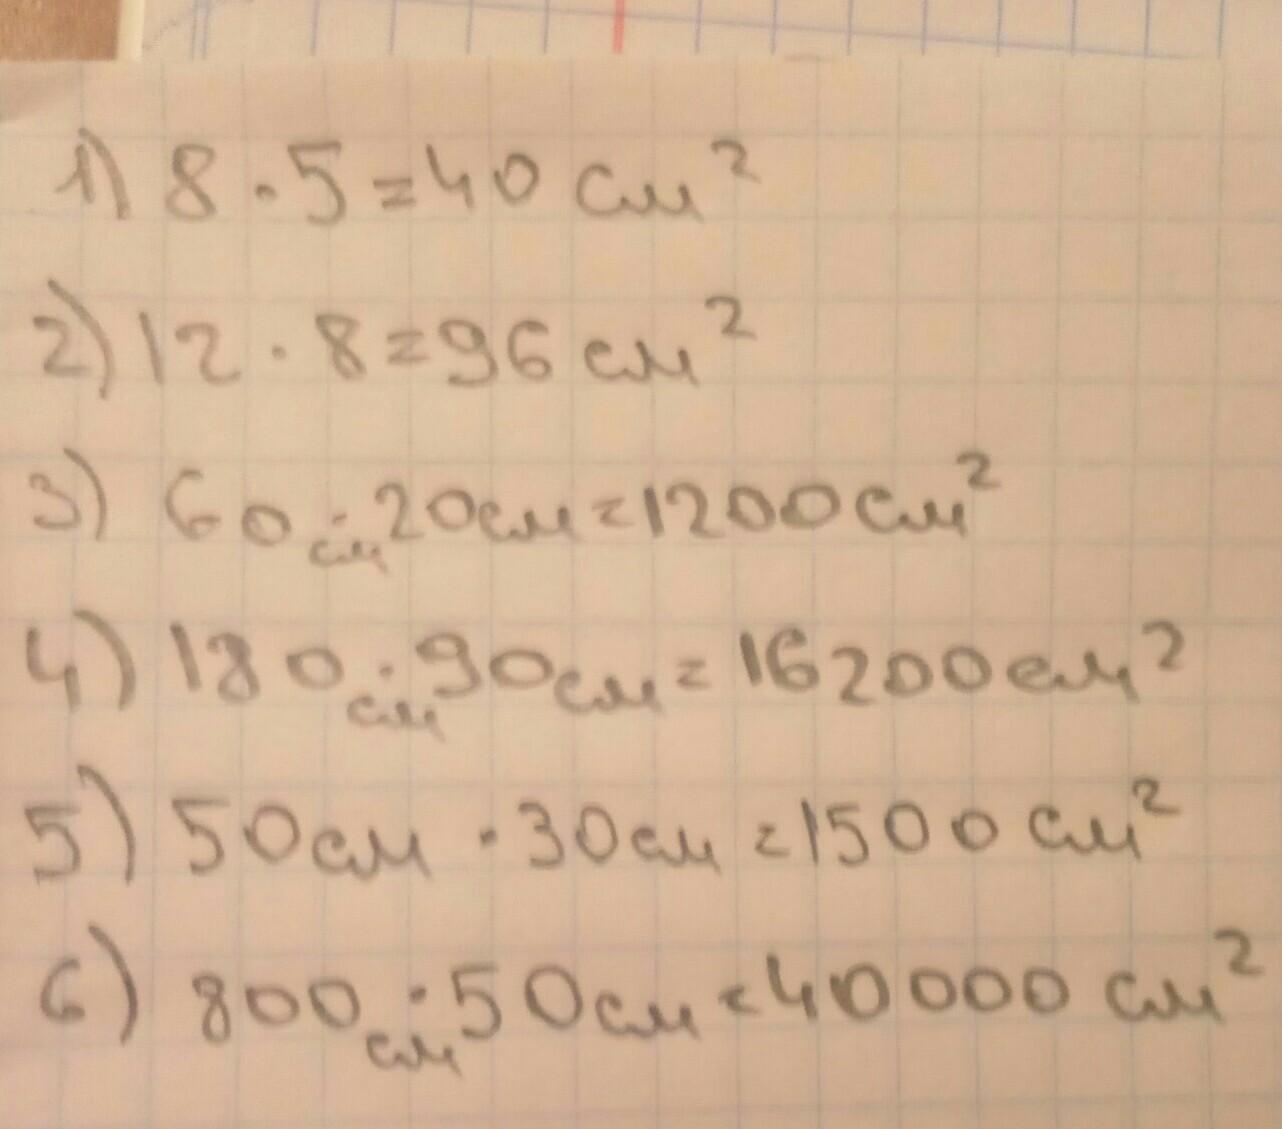 1) 8 · 5 = 40 см²
2) 12 · 8 = 96 см²
3) 60 см · 20 см = 1200 см²
4) 180 см · 90 см = 16200 см²
5) 50 см · 30 см = 1500 см²
6) 800 см · 50 см = 40000 см²